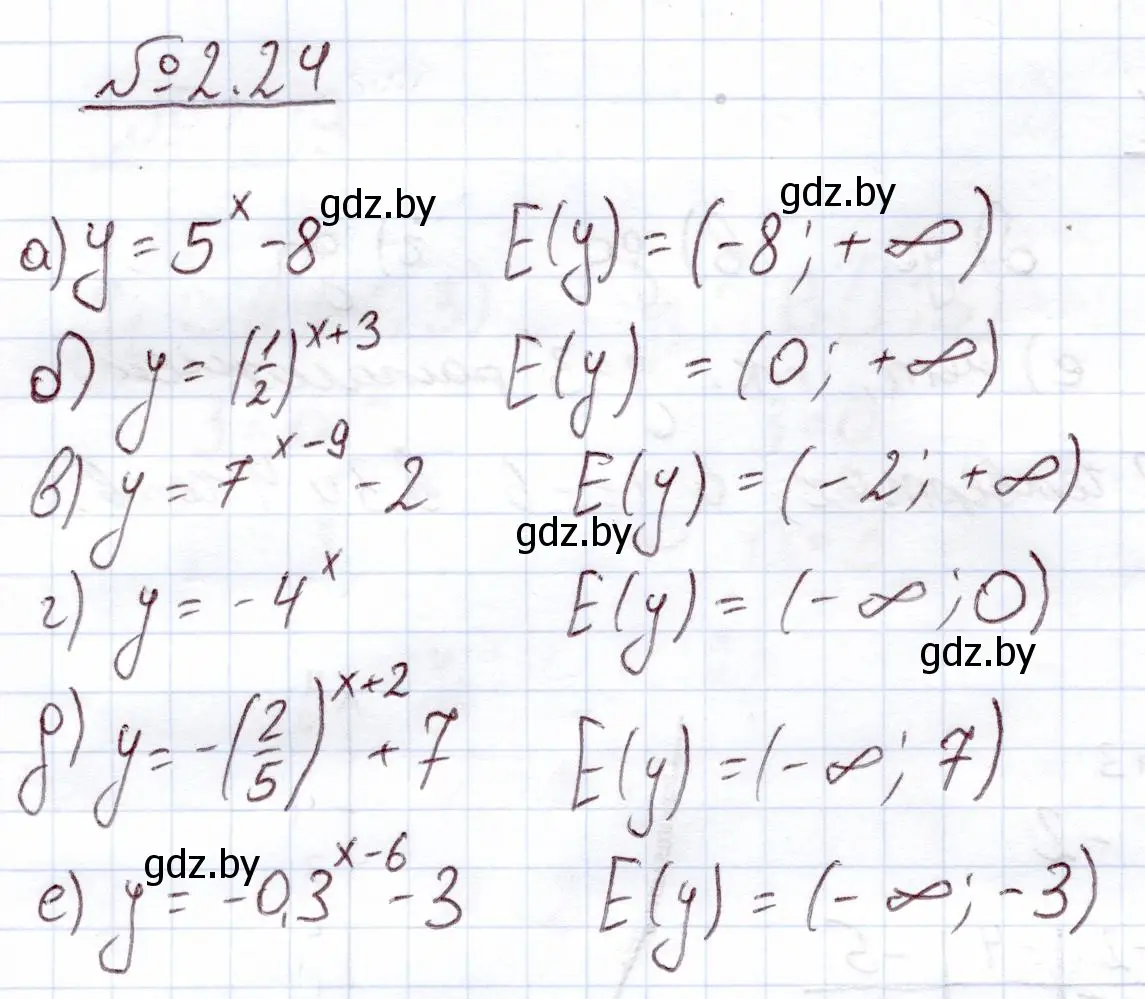 №2.24
gdz.by gdz.by
а) y = 5^x - 8 E(y) = (-8; +∞)
б) y = (1/2)^(x+3) E(y) = (0; +∞)
в) y = 7^(x-9) - 2 E(y) = (-2; +∞)
gdz.by
г) y = -4^x E(y) = (-∞; 0)
gdz.by
д) y = -(2/5)^(x+2) + 7 E(y) = (-∞; 7)
gdz.by
е) y = -0,3^(x-6) - 3 E(y) = (-∞; -3)